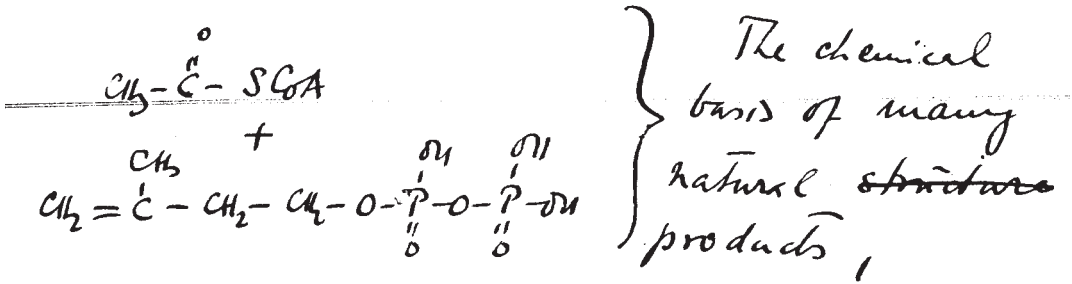 O
CH3-C-SCoA
+
CH3 OH OH
CH2=C-CH2-CH2-O-P-O-P-OH
O O
The chemical
basis of many
natural structure
products,